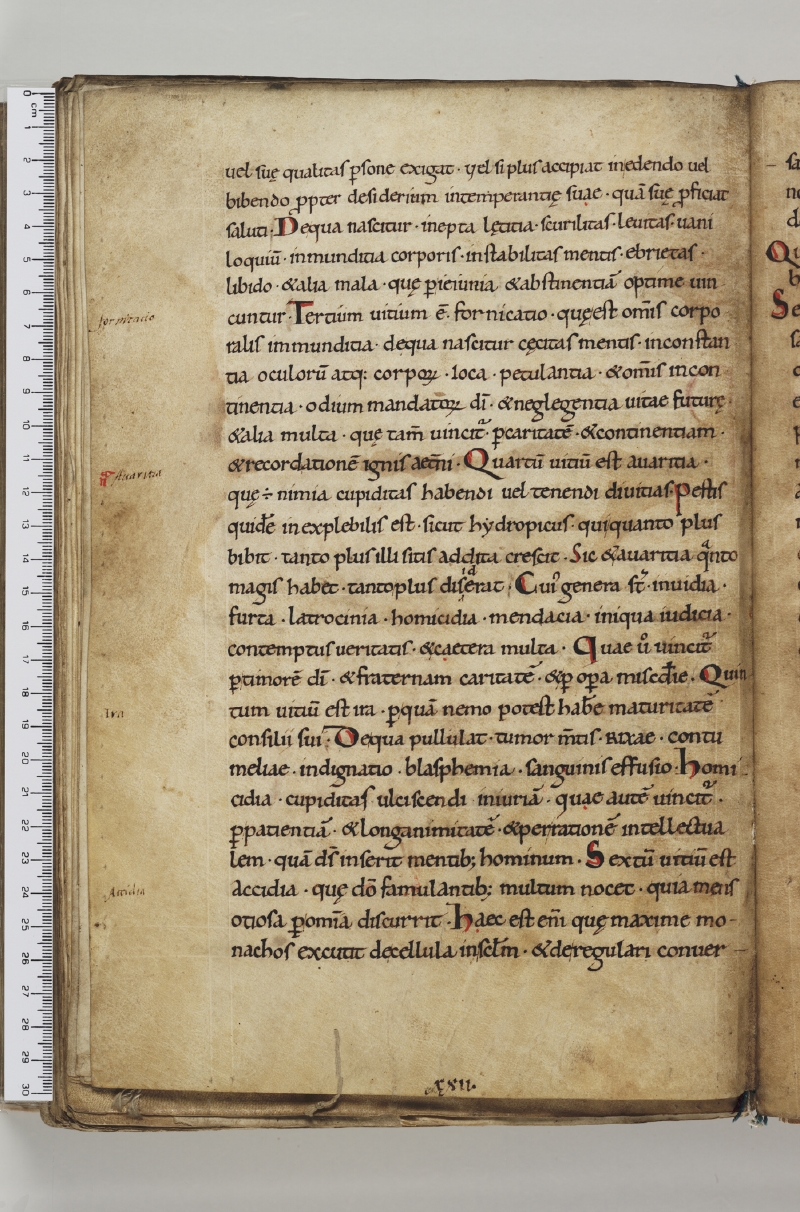 uel suę qualitas ꝑsone exigat · uel si plus accipiat inedendo uel
bibendo ꝓpter desiderium intemperantię suae · quā suę ꝓficiat
saluti · Dequa nascitur · inepta lętitia · scurilitas · leuitas · uani
loquiū · inmunditia corporis · instabilitas mentis · ebrietas ·
libido · &alia mala · quę ꝑieiunia &abstinentiā optime uin
cuntur · Tertium uitium ē · fornicatio · quęest om̄is corpo
ralis immunditia · dequa nascitur cęcitas mentis · inconstan
tia oculorū atq: corpoꝝ · ioca · petulantia · &om̄is incon
tinentia · odium mandatoꝝ dī · &neglegentia uitae futurę ·
&alia multa · quę tam̄ uincit᷑ · ꝑcaritatē · &continentiam ·
&recordationē ignis aet̄ni · Quartū uitiū est auaritia ·
quę ÷ nimia cupiditas habendi uel tenendi diuitias · Pestis
quidē inexplebilis est · sicut hydropicus · quiquanto plus
bibit · tanto plus illi sitis addita crescit · Sic &auaritia qͣnto
magis habet · tantoplus disiderat · Cui᾿ genera st̄ · inuidia ·
furta · latrocinia · homicidia · mendacia · iniqua iudicia ·
contemptus ueritatis · &caetera multa · Quae ů uincit᷑
ꝑtimorē dī · &fraternam caritatē · &ꝑ oꝑa misc̄die · Quin
tum uitiū est ira · ꝑquā nemo potest habe᷑ maturitatē
consilii sui · Dequa pullulat · tumor m̄tis · rixae · contu
meliae · indignatio · blasphemia · sanguinis effusio · homi
cidia · cupiditas ulciscendi iniuriā · quae autē uincit᷑ ·
ꝑpatientiā · &longanimitatē · &perrationē intellectua
lem · quā dс̄ inserit mentib; hominum · Sextū uitiū est
Accidia · quę dō famulantib; multum nocet · quia mens
otiosa ꝑom̄ia discurrit · haec est em̄ quę maxime mo-
nachos excutit decellula insclm̄ · &deregulari conuer-
fornicatio
Auaritia
Ira
Accidia
XXII·